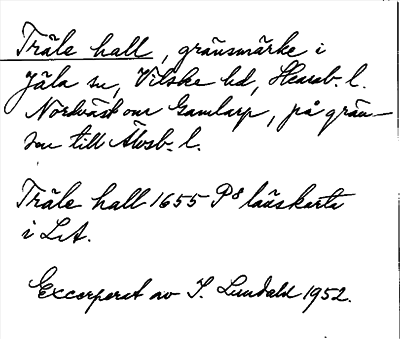 Träle hall, gränsmärke i
Jäla sn, Vilske hd, Skarab. l.
Nordväst om Gamlarp, på grän-
sen till Älvsb. l.
Träle hall 1655 P8 lääskarta
i LA.
Excerperat av I. Lundahl 1952.